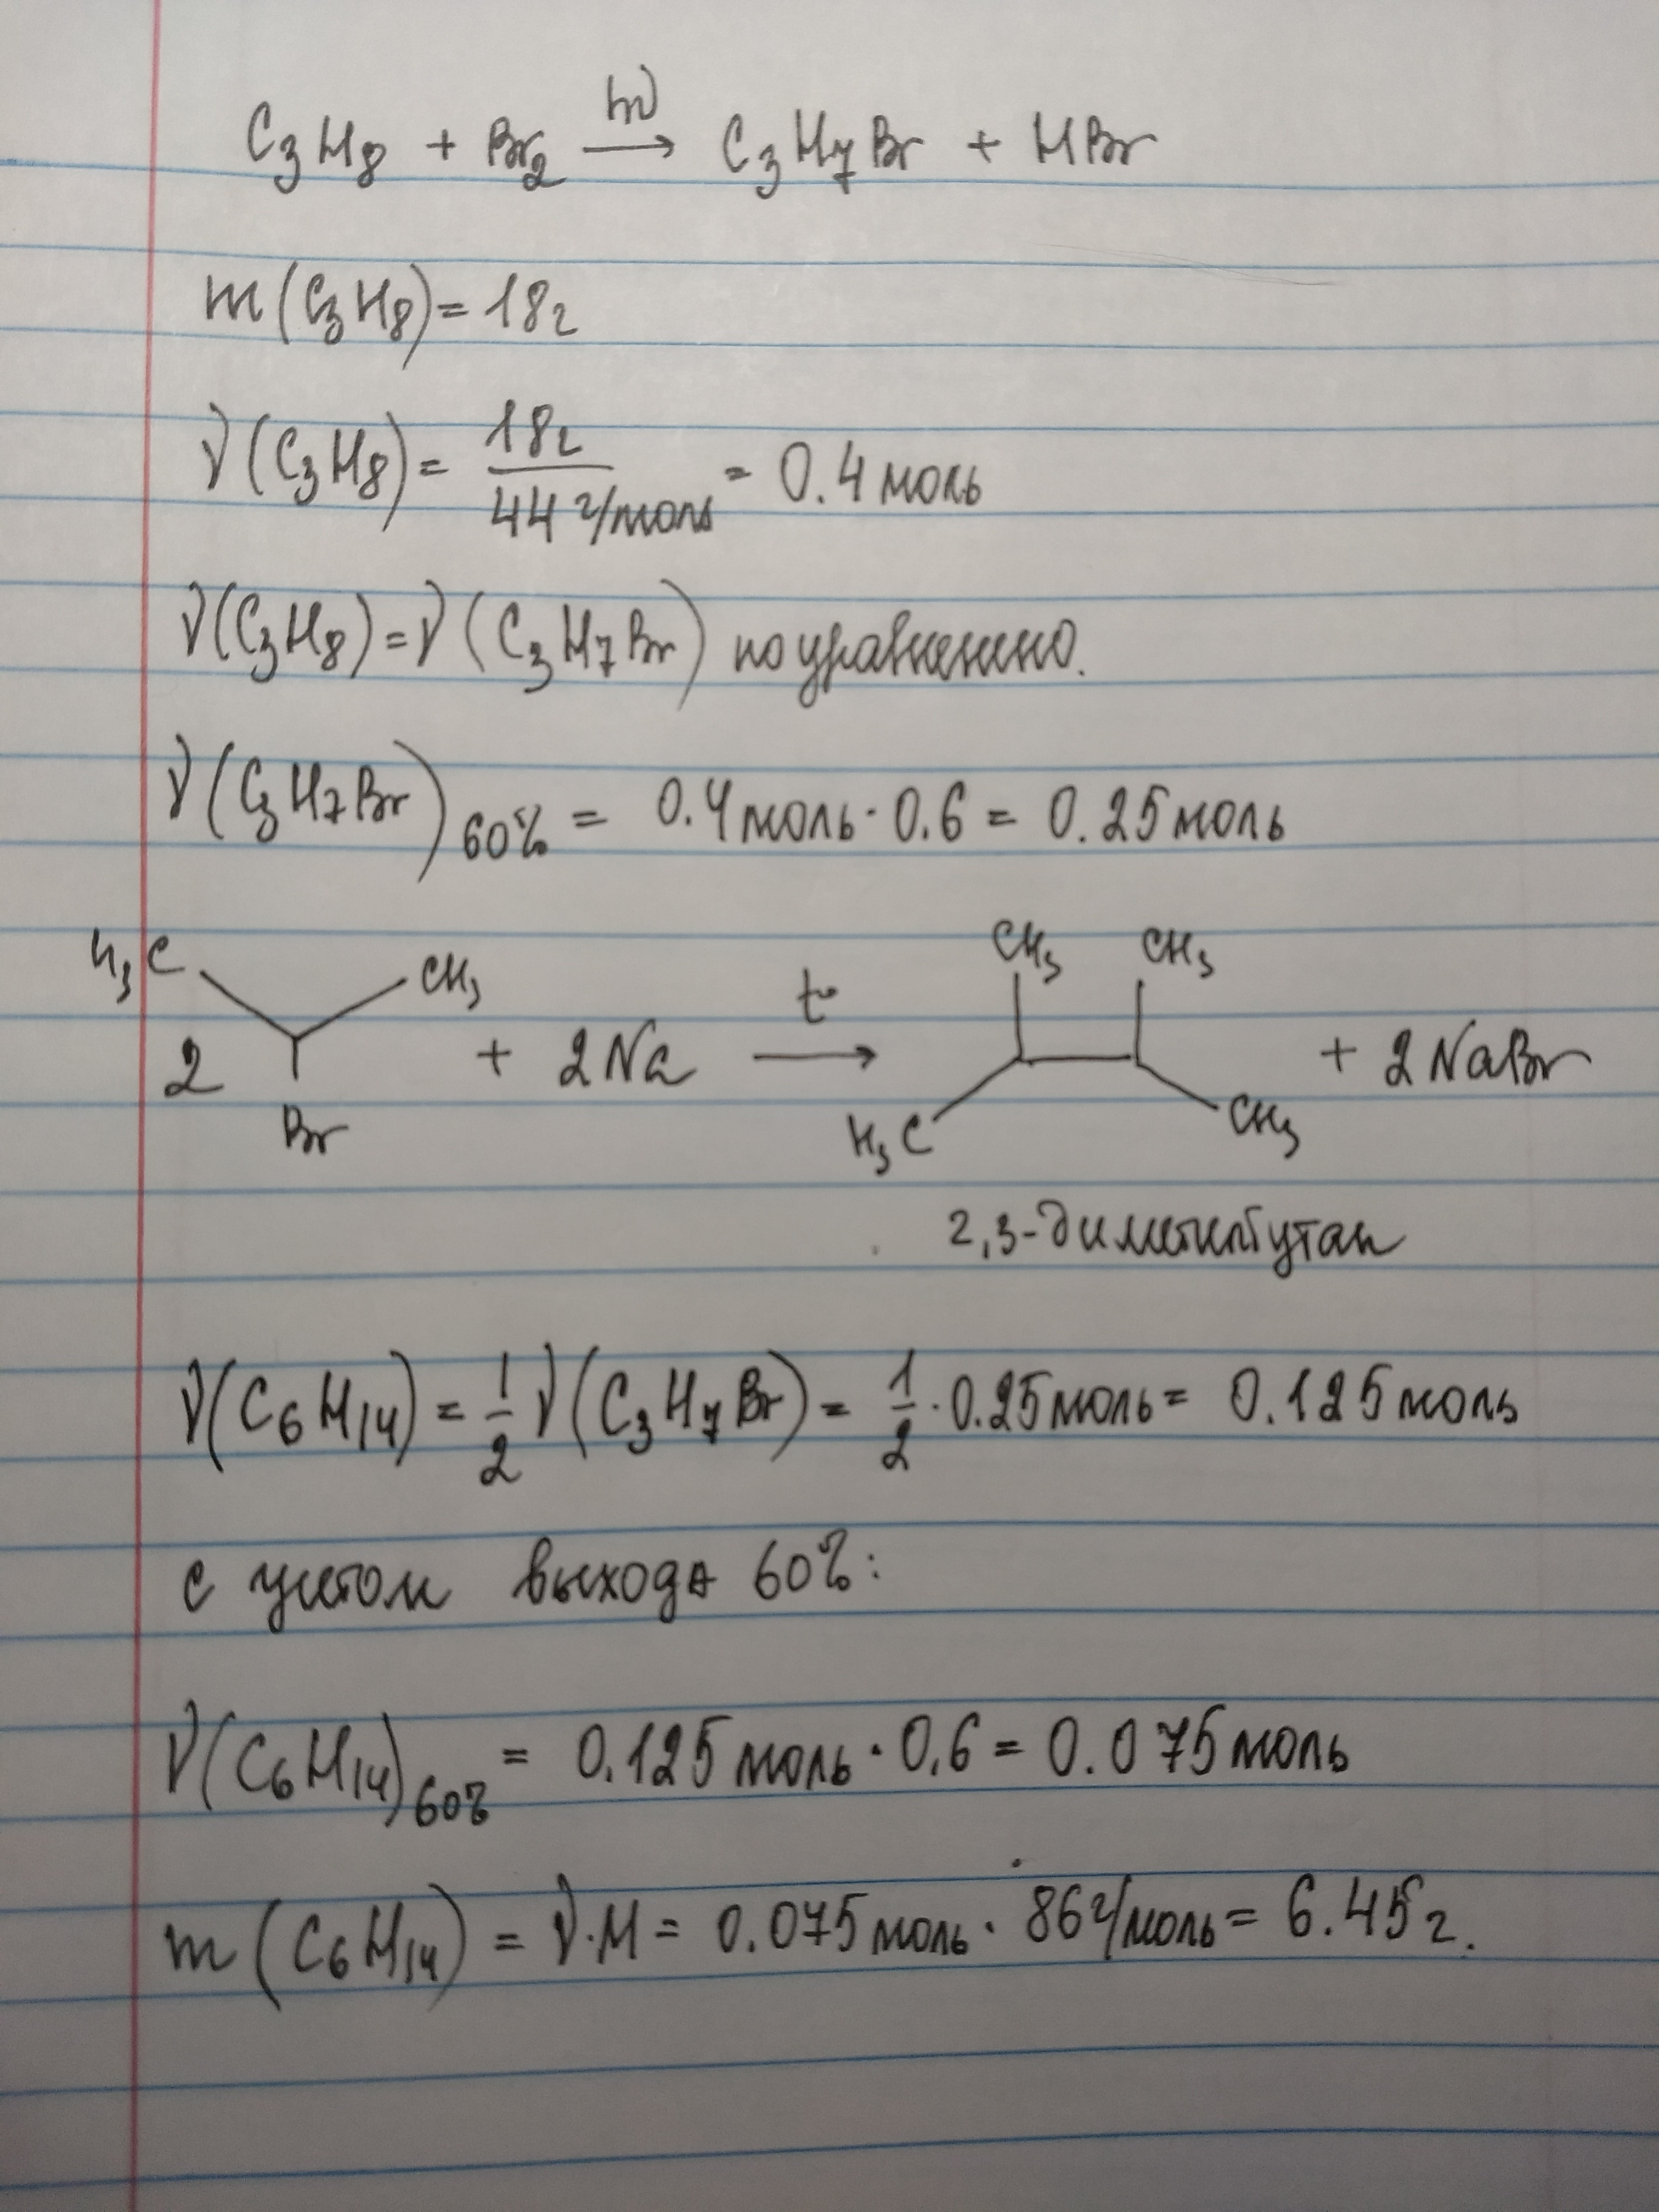 C3H8 + Br2 hν → C3H7Br + HBr
m(C3H8) = 18г
ν(C3H8) = 18г / 44 г/моль = 0.4 моль
ν(C3H8) = ν(C3H7Br) по уравнению.
ν(C3H7Br)60% = 0.4 моль · 0.6 = 0.25 моль
H3C CH3 CH3 CH3
2 + 2Na t° → + 2NaBr
Br H3C CH3
2,3-диметилбутан
ν(C6H14) = 1/2 ν(C3H7Br) = 1/2 · 0.25 моль = 0.125 моль
с учетом выхода 60%:
ν(C6H14)60% = 0.125 моль · 0.6 = 0.075 моль
m(C6H14) = ν·M = 0.075 моль · 86 г/моль = 6.45 г.